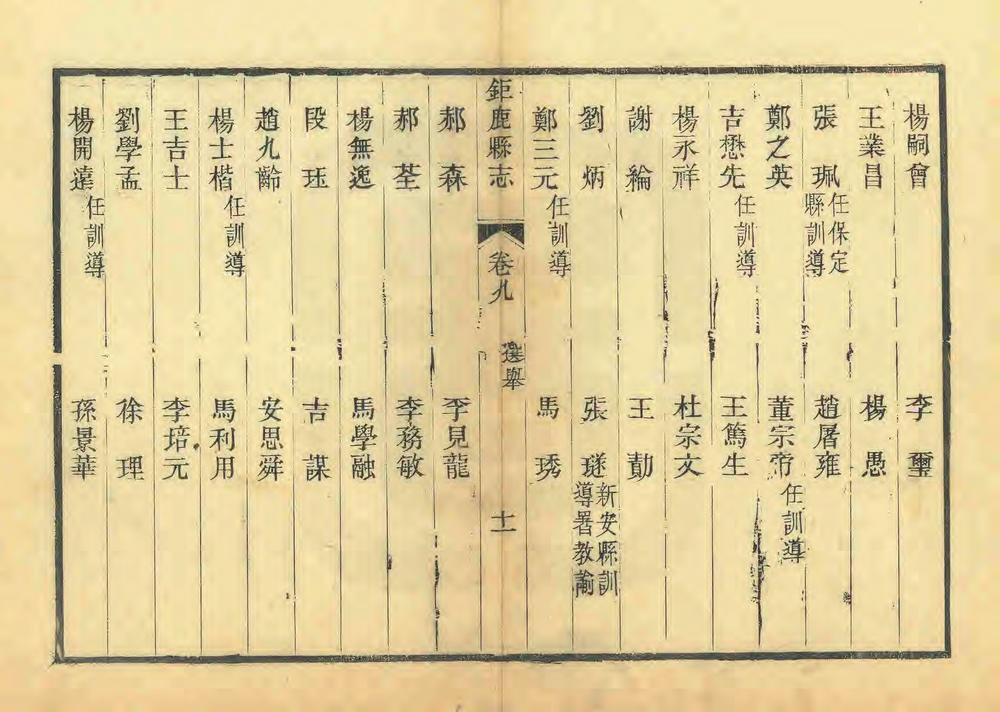 楊嗣會 李璽
王業昌 楊愚
張珮 任保定縣訓導 趙屠雍
鄭之英 董宗帝 任訓導
吉懋先 任訓導 王篤生
楊永祥 杜宗文
謝綸 王勭
劉炳 張璲 新安縣訓導署教諭
鄭三元 任訓導 馬琇
鉅鹿縣志 卷九 選舉 十一
郝森 李見龍
郝荃 李務敏
楊無逸 馬學融
段珏 吉謀
趙九齡 安思舜
楊士楷 任訓導 馬利用
王吉士 李培元
劉學孟 徐理
楊開遠 任訓導 孫景華